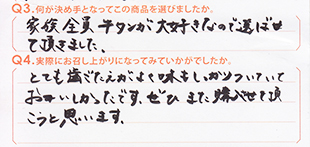 Q3.何が決め手となってこの商品を選びましたか。
家族全員牛タンが大好きなので選ばせ
て頂きました。
Q4.実際にお召し上がりになってみていかがでしたか。
とても歯ごたえがよく味もしっかりついていて
おいしかったです。ぜひまた購入させて頂
こうと思います。